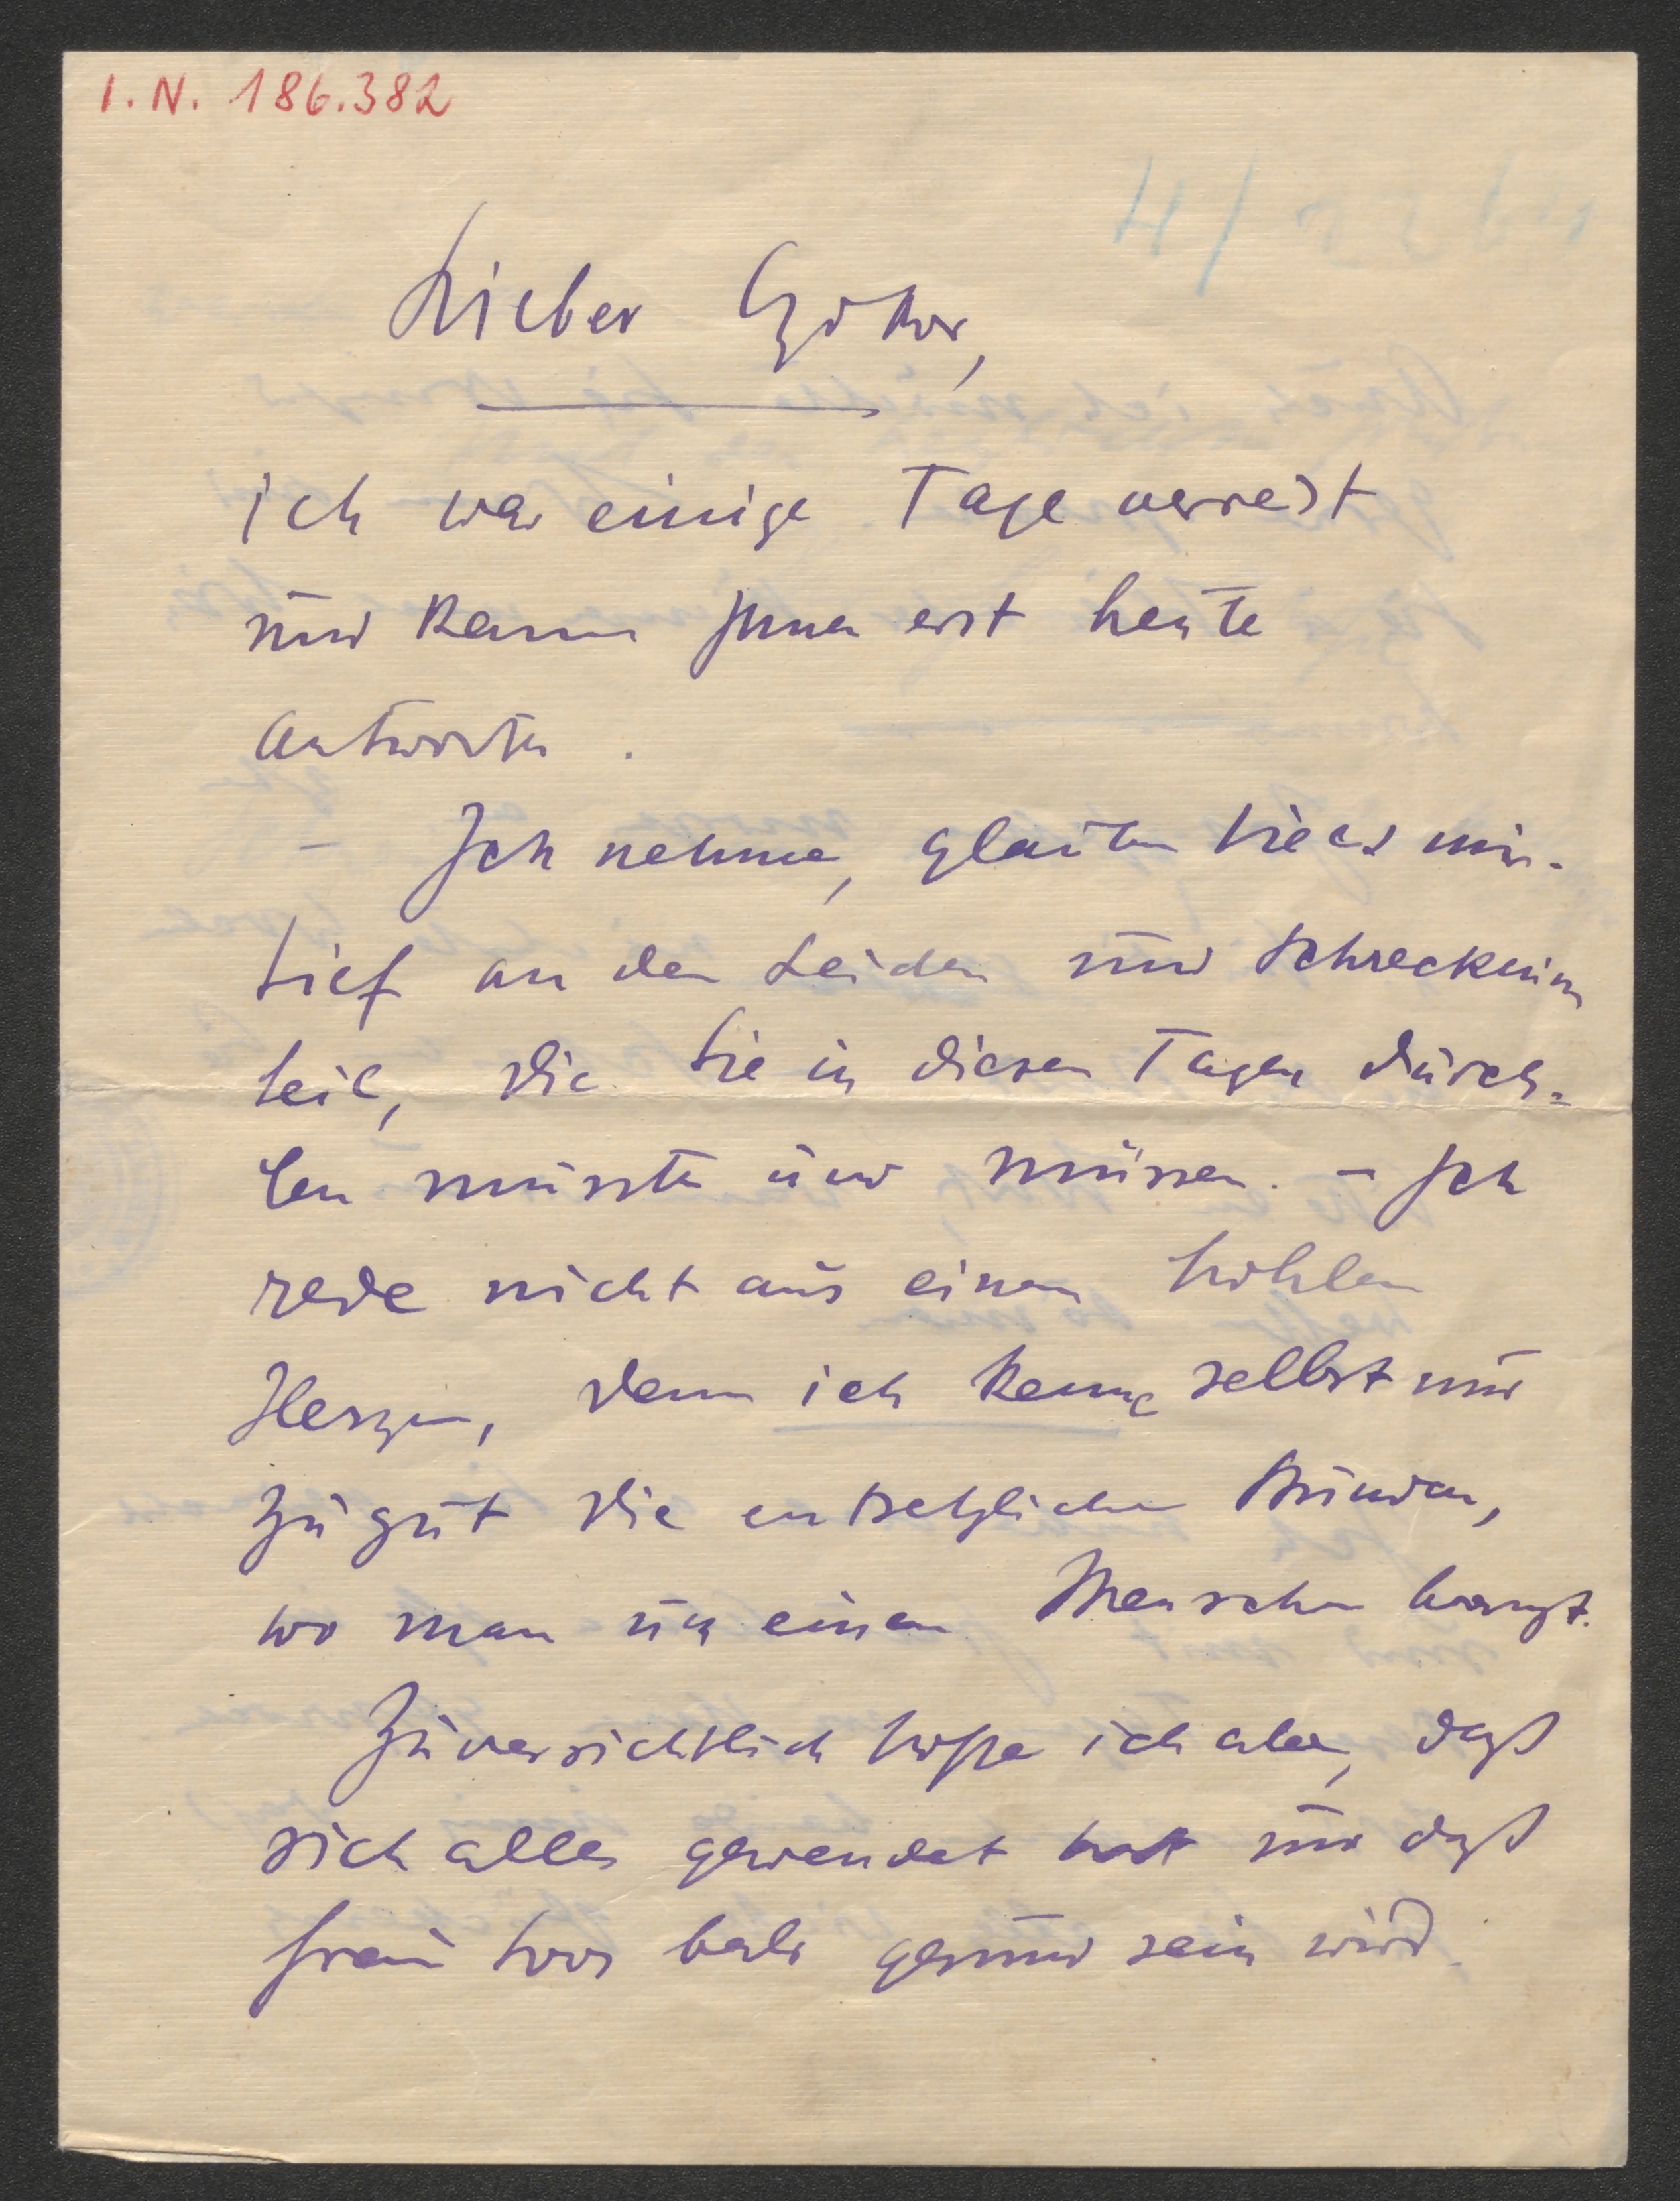 I.N. 186.382
Lieber
ich war einige Tage verreist
und kann Ihnen erst heute
antworten.
– Ich nehme, glauben Sie es mir.
tief an den Leiden und Schrecknissen
teil, die Sie in diesen Tagen durch=
leben mussten und müssen. – Ich
rede nicht aus einem hohlen
Herzen, denn ich kenne selbst nur
zu gut die entsetzlichen Stunden,
wo man um einen Menschen bangt.
Zuversichtlich hoffe ich aber, daß
sich alles gewendet hat und daß
Frau Loos bald gesund sein wird.